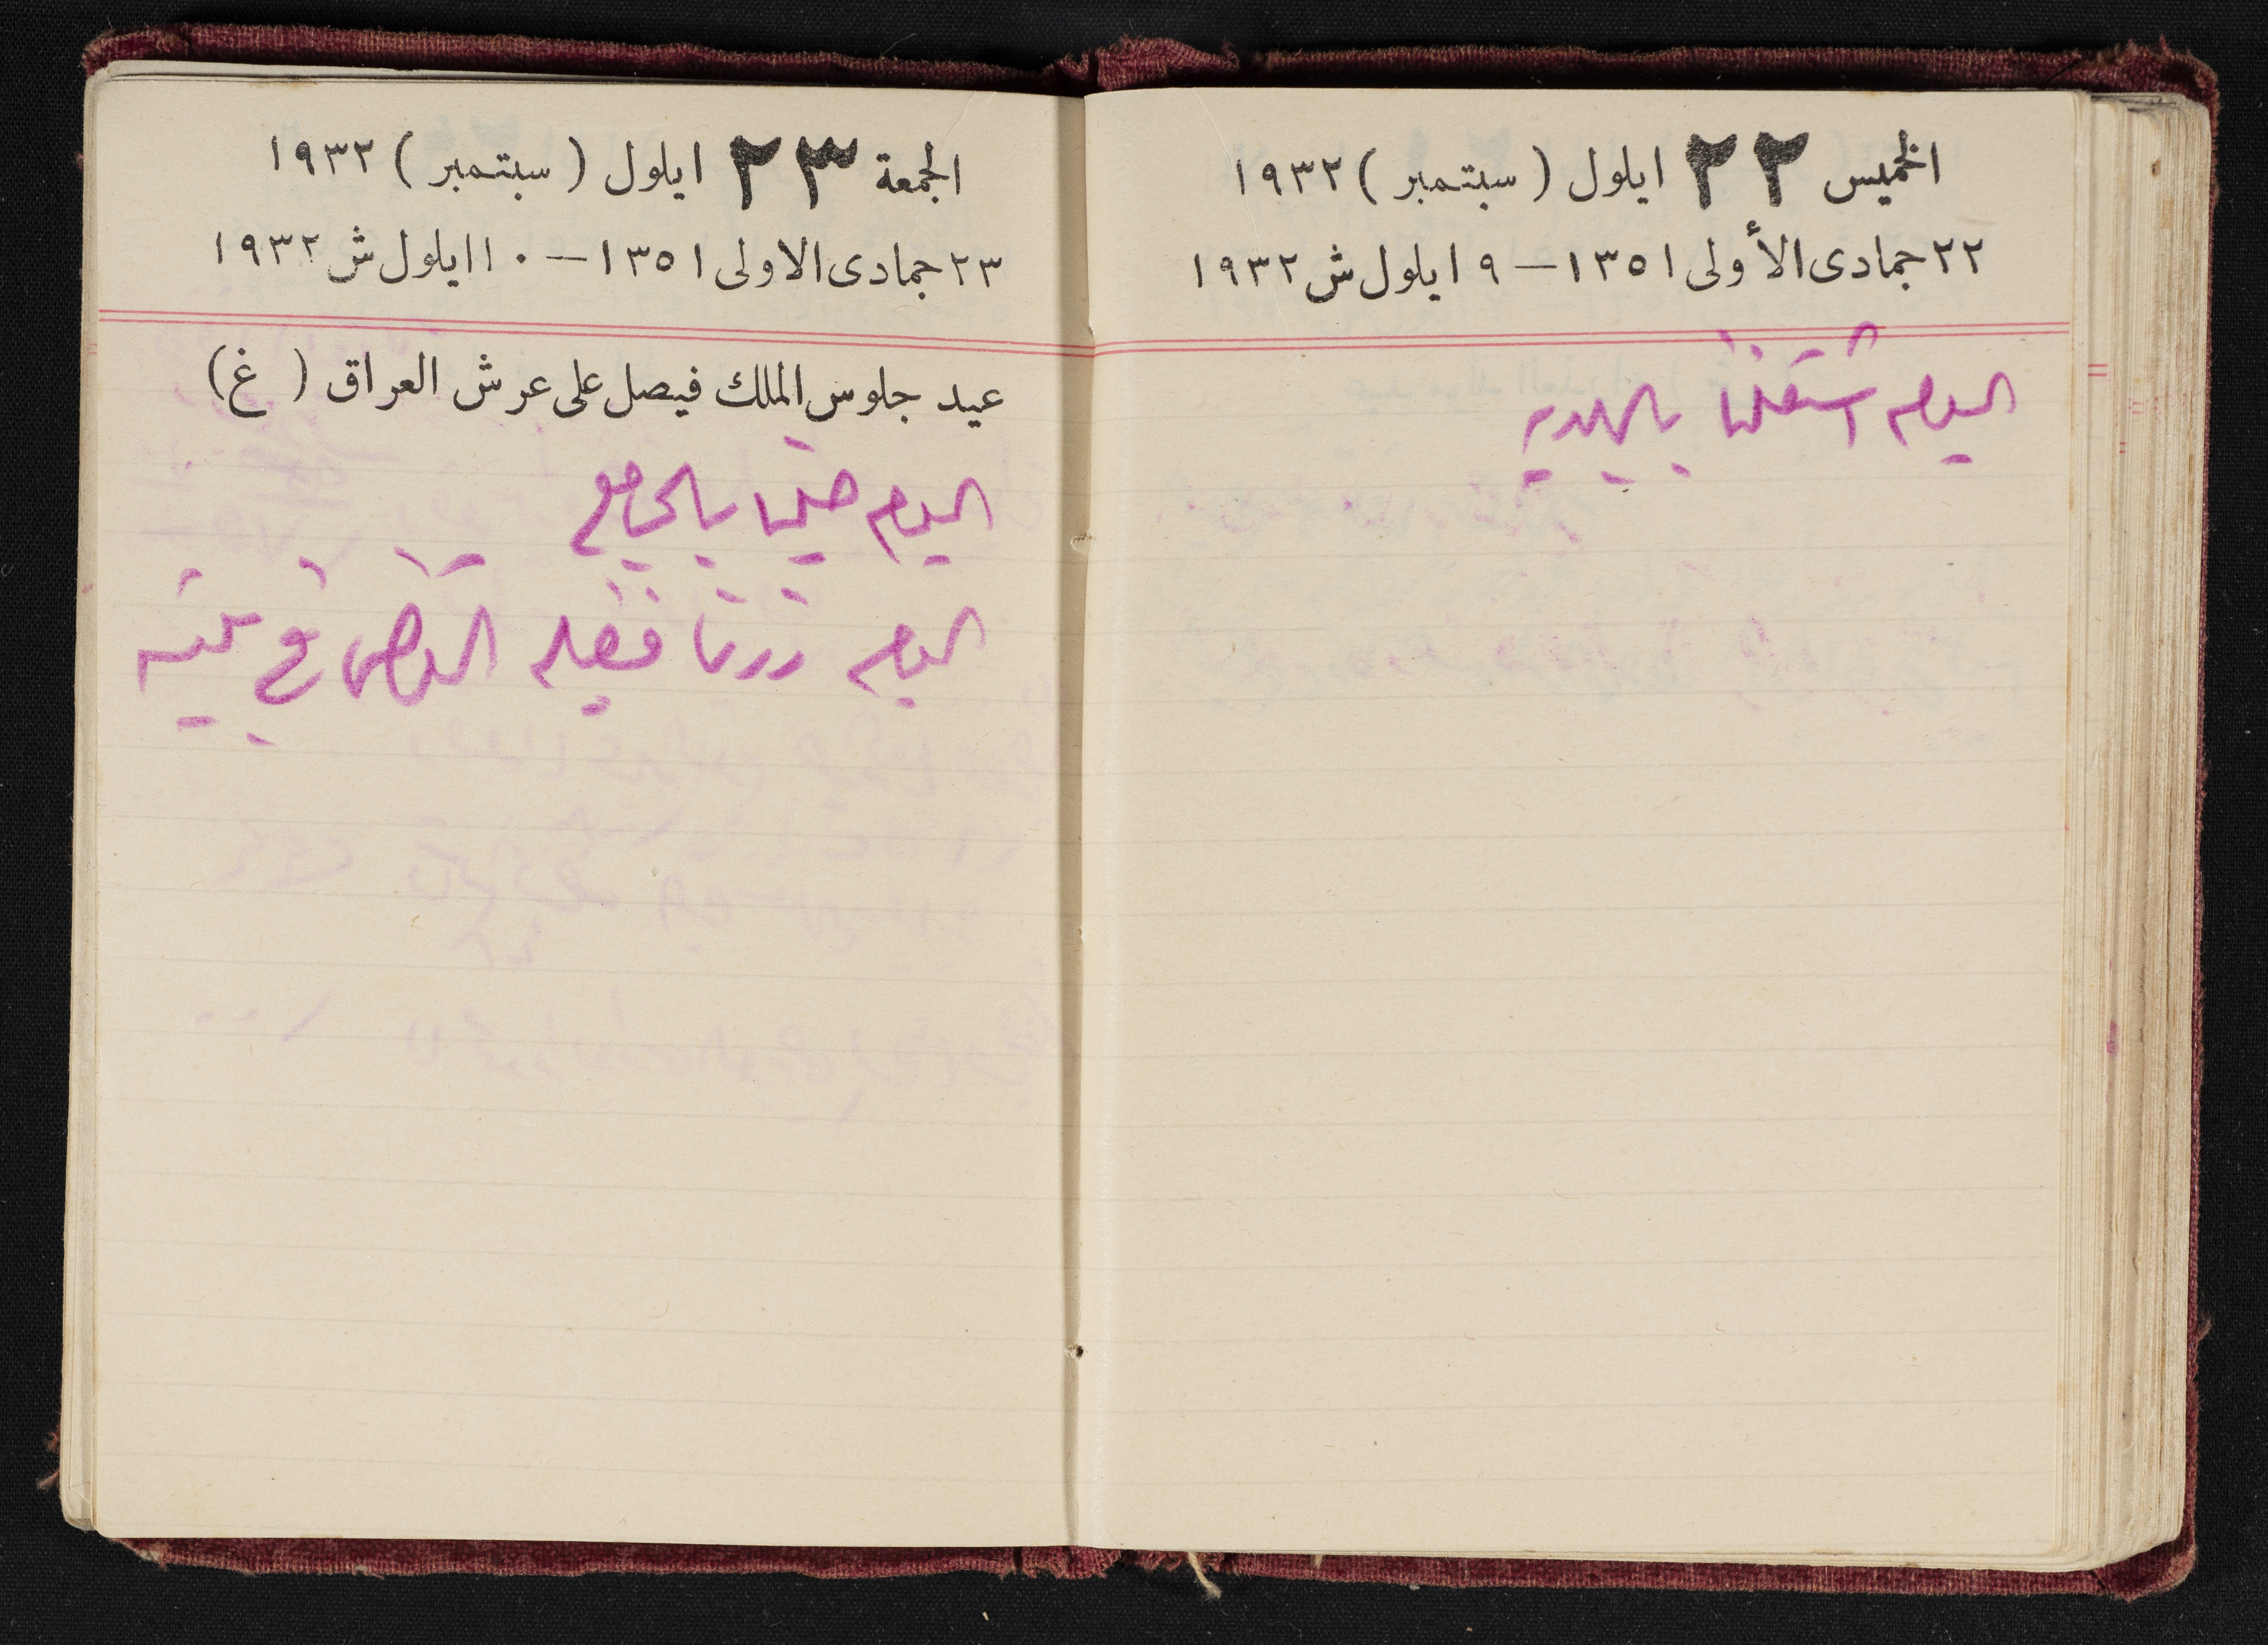 الخميس ٢٢ ايلول ( سبتمبر ) ١٩٣٢
٢٢ جمادى الأولى ١٣٥١ — ٩ ايلول ش ١٩٣٢
اليوم اشتغلنا بالبلديه
الجمعة ٢٣ ايلول ( سبتمبر ) ١٩٣٢
٢٣ جمادى الاولى ١٣٥١ — ١٠ ايلول ش ١٩٣٢
عيد جلوس الملك فيصل على عرش العراق ( غ )
اليوم صلينا بالجامع
اليوم زرنا فضيلة القاضي في بيته